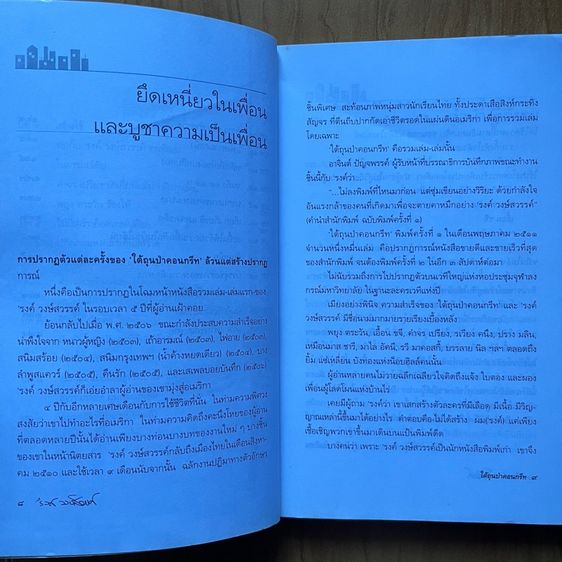 ยึดเหนี่ยวในเพื่อน
และบูชาความเป็นเพื่อน
การปรากฏตัวแต่ละครั้งของ 'ใต้ถุนป่าคอนกรีท' ล้วนแต่สร้างปรากฏ
การณ์
หนึ่งคือการปรากฏในโฉมหน้าหนังสือรวมเล่ม-เล่มแรก-ของ
'รงค์ วงษ์สวรรค์ ในรอบเวลา ๕ ปีที่ผู้อ่านเฝ้าคอย
ย้อนกลับไปเมื่อ พ.ศ. ๒๕๐๖ ขณะกำลังประสบความสำเร็จอย่าง
น่าพึงใจจาก หนาวผู้หญิง (๒๕๐๓), เถ้าอารมณ์ (๒๕๐๓), ไฟอาย (๒๕๐๓)
สนิมสร้อย (๒๕๐๔), สนิมกรุงเทพฯ (น้ำค้างหยดเดียว) (๒๕๐๔), บาง
ลำพูสแควร์ (๒๕๐๕), คืนรัก (๒๕๐๕), และเสเพลบอยบันทึก (๒๕๐๕)
'รงค์ วงษ์สวรรค์ก็เอ่ยอำลาผู้อ่านของเขามุ่งสู่อเมริกา
๔ ปีกับอีกหลายเศษเดือนกับการใช้ชีวิตที่นั่น ในท่ามความพิศวง
สงสัยว่าเขาไปทำอะไรที่อเมริกา ในท่ามความคิดถึงคะนึงไทยของผู้อ่าน
ที่ตลอดหลายปีนั้นได้อ่านเพียงบางท่อนบางบทของงานใหม่ ๆ บางชิ้น
ของเขาในหน้านิตยสาร 'รงค์ วงษ์สวรรค์กลับถึงเมืองไทยในเดือนสิงหา-
คม ๒๕๑๐ และใช้เวลา ๙ เดือนนับจากนั้น ฉลักงานปฏิมาทางตัวอักษร
๘
ชิ้นพิเศษ สะท้อนภาพหนุ่มสาวนักเรียนไทย ทั้งประดาเสือสิงห์กระทิง
สัญจร ที่ดีนถีบปากกัดเอาชีวิตรอดในแผ่นดินอเมริกา เพื่อการรวมเล่ม
โดยเฉพาะ
'ใต้ถุนป่าคอนกรีท' คือรวมเล่ม-เล่มนั้น
อาจินต์ ปัญจพรรค์ ผู้รับหน้าที่บรรณาธิการบันทึกภาพขณะทำงาน
ชิ้นนี้กับ 'รงค์ว่า
"...ไม่ลงพิมพ์ที่ไหนมาก่อน แต่ซุ่มเขียนอย่างวิริยะ ด้วยกำลังใจ
อันแรงกล้าของคนที่เกิดมาเพื่อจะตายคาหมึกอย่าง 'รงค์ วงษ์สวรรค์"
(คำนำสำนักพิมพ์ ฉบับพิมพ์ครั้งที่ ๑)
'ใต้ถุนป่าคอนกรีท' พิมพ์ครั้งที่ ๑ ในเดือนพฤษภาคม ๒๕๑๑
จำนวนหนึ่งหมื่นเล่ม คือปรากฏการณ์หนังสือขายดีและขายเร็วที่สุด
ของสำนักพิมพ์ จนต้องพิมพ์ครั้งที่ ๒ ในอีก ๓ สัปดาห์ต่อมา
ไม่นับรวมถึงการไปปรากฏตัวบนเวทีใหญ่แห่งหอประชุมจุฬาลง
กรณ์มหาวิทยาลัย ในฐานะละครเวทีแห่งปี
เมียงอย่างพินิจ, ความสำเร็จของ 'ใต้ถุนป่าคอนกรีท' และ 'รงค์
วงษ์สวรรค์ มีชื่อนามมากมายรายเรียงเบื้องหลัง
ผู้อ่านหลายคนไม่วายฉลีกเฉลียวใจคิดถึงแจ้ง ใบตอง และผอง
เพื่อนผู้โลดโผนแห่งบ้านไร่
เคยมีผู้ถาม 'รงค์ว่า เขาแสกสร้างตัวละครที่มีเลือด มีเนื้อ มีวิญ-
ญาณเหล่านี้ขึ้นมาได้อย่างไร คำตอบคือ-ไม่ได้สร้าง ผม('รงค์) แค่เพียง
เชื้อเชิญพวกเขาขึ้นมาเดินบนแป้นพิมพ์ดีด
บางคนว่า เพราะ 'รงค์ วงษ์สวรรค์เป็นนักหนังสือพิมพ์เก่า เขาจึง
ใต้ถุนป่าคอนกรีท ๙